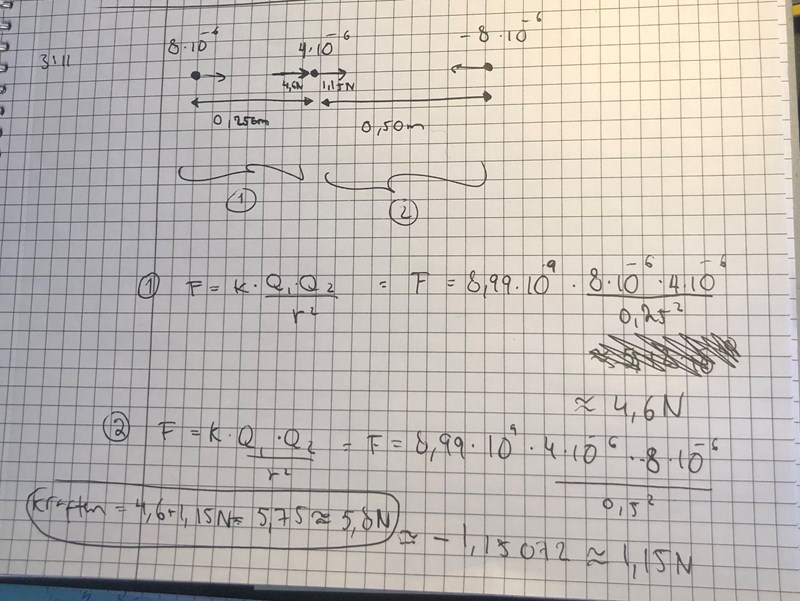 3:11
8·10⁻⁶ 4·10⁻⁶ -8·10⁻⁶
4,6N 1,15N
0,25m 0,50m
① ②
① F = K · Q₁·Q₂ / r² = F = 8,99·10⁹ · 8·10⁻⁶ · 4·10⁻⁶ / 0,25²
≈ 4,6N
② F = K · Q₁·Q₂ / r² = F = 8,99·10⁹ · 4·10⁻⁶ · -8·10⁻⁶ / 0,5²
Kraften = 4,6+1,15N = 5,75 ≈ 5,8N
≈ -1,15072 ≈ 1,15N